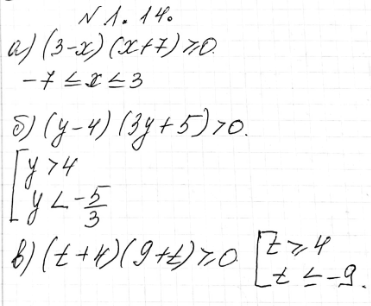 N 1.14.
а) (3-x)(x+7)≥0.
-7≤x≤3
б) (y-4)(3y+5)>0.
[y>4
[y<-5/3
в) (t+4)(9+t)≥0 [t≥4
[t≤-9.